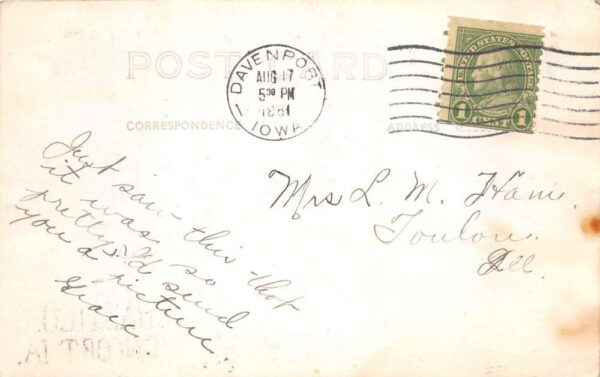 POST CARD
DAVENPORT
AUG 17
5 30 PM
1861
IOWA
UNITED STATES POSTAGE
1 CENT 1
CORRESPONDENCE
ADDRESS
Just saw this that
it was so
pretty I'd send
you a picture
Grace
Mrs L. M. Ham.
Toulon.
Ill.
PORT IA.